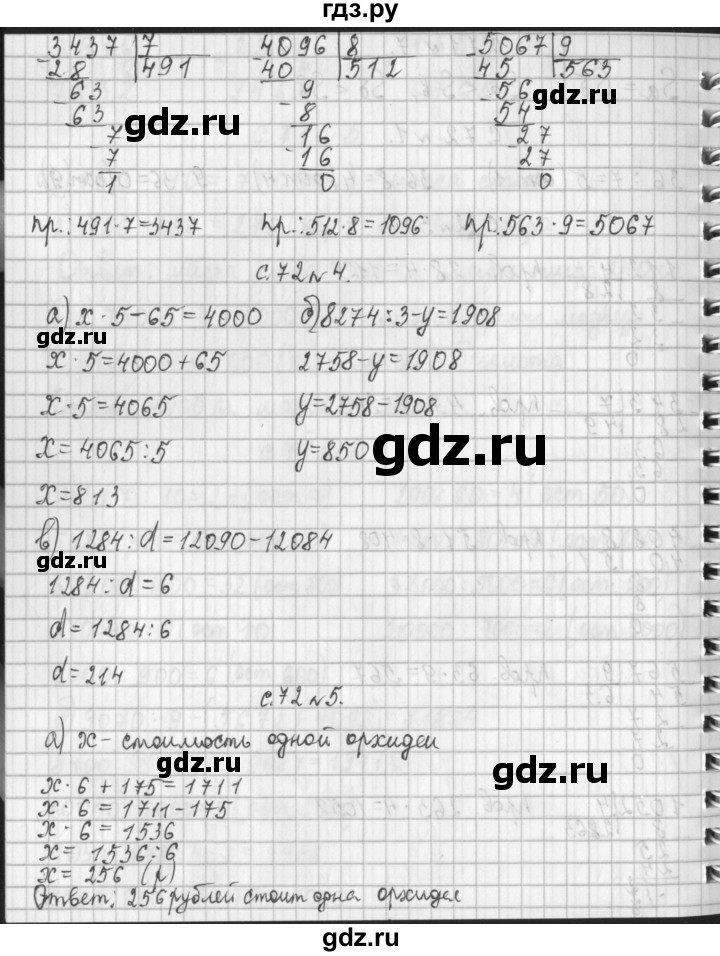 гдз.ру
3437 | 7 4096 | 8 5067 | 9
28 491 40 512 45 563
63 9 56
63 8 54
7 16 27
7 16 27
1 0 0
gdz.ru gdz.ru gdz.ru
пр.: 491·7=3437 пр.: 512·8=1096 пр.: 563·9=5067
с.72 №4.
а) x·5-65=4000 б) 8274:3-y=1908
gdz.ru
x·5=4000+65 2758-y=1908
x·5=4065 y=2758-1908
x=4065:5 y=850
gdz.ru
x=813
в) 1284:d=12090-12084
gdz.ru
1284:d=6
d=1284:6
d=214
с.72 №5.
а) x- стоимость одной орхидеи
gdz.ru gdz.ru
x·6+175=1711
x·6=1711-175
x·6=1536
x=1536:6
x=256 (р)
Ответ: 256 рублей стоит одна орхидея
gdz.ru